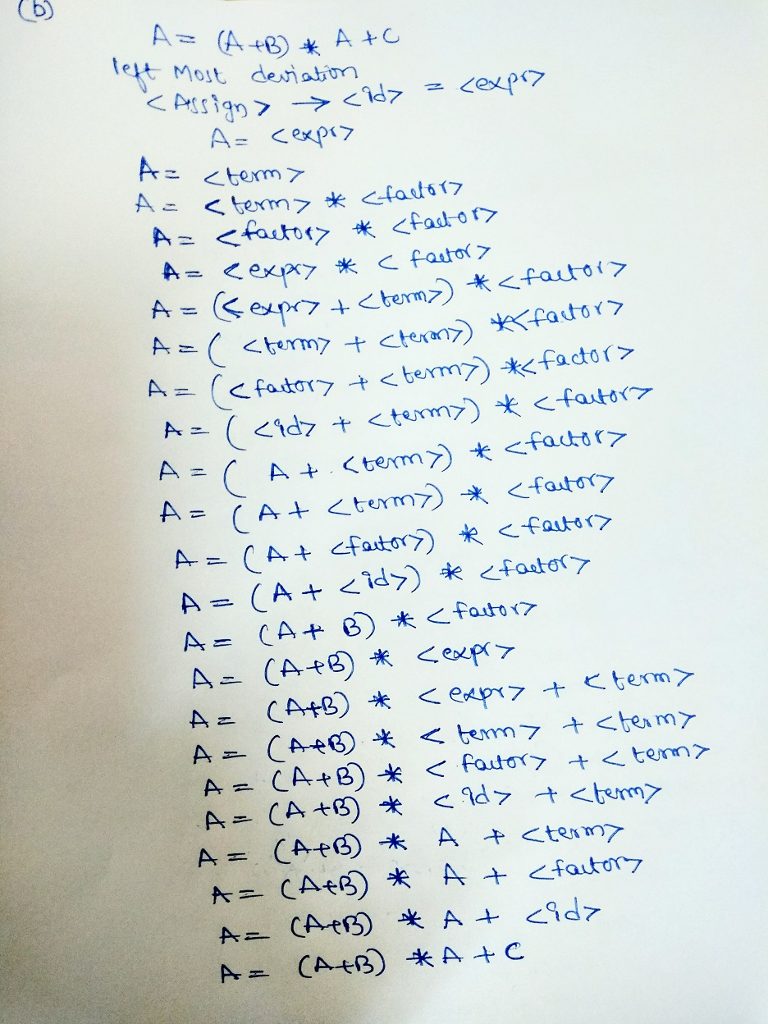 (b)
A = (A+B) * A + C
left Most deviation
<Assign> → <id> = <expr>
A = <expr>
A = <term>
A = <term> * <factor>
A = <factor> * <factor>
A = <expr> * <factor>
A = (<expr> + <term>) * <factor>
A = ( <term> + <term>) * <factor>
A = (<factor> + <term>) * <factor>
A = ( <id> + <term>) * <factor>
A = ( A + <term>) * <factor>
A = (A + <term>) * <factor>
A = (A + <factor>) * <factor>
A = (A + <id>) * <factor>
A = (A + B) * <factor>
A = (A+B) * <expr>
A = (A+B) * <expr> + <term>
A = (A+B) * <term> + <term>
A = (A+B) * <factor> + <term>
A = (A+B) * <id> + <term>
A = (A+B) * A + <term>
A = (A+B) * A + <factor>
A = (A+B) * A + <id>
A = (A+B) * A + C